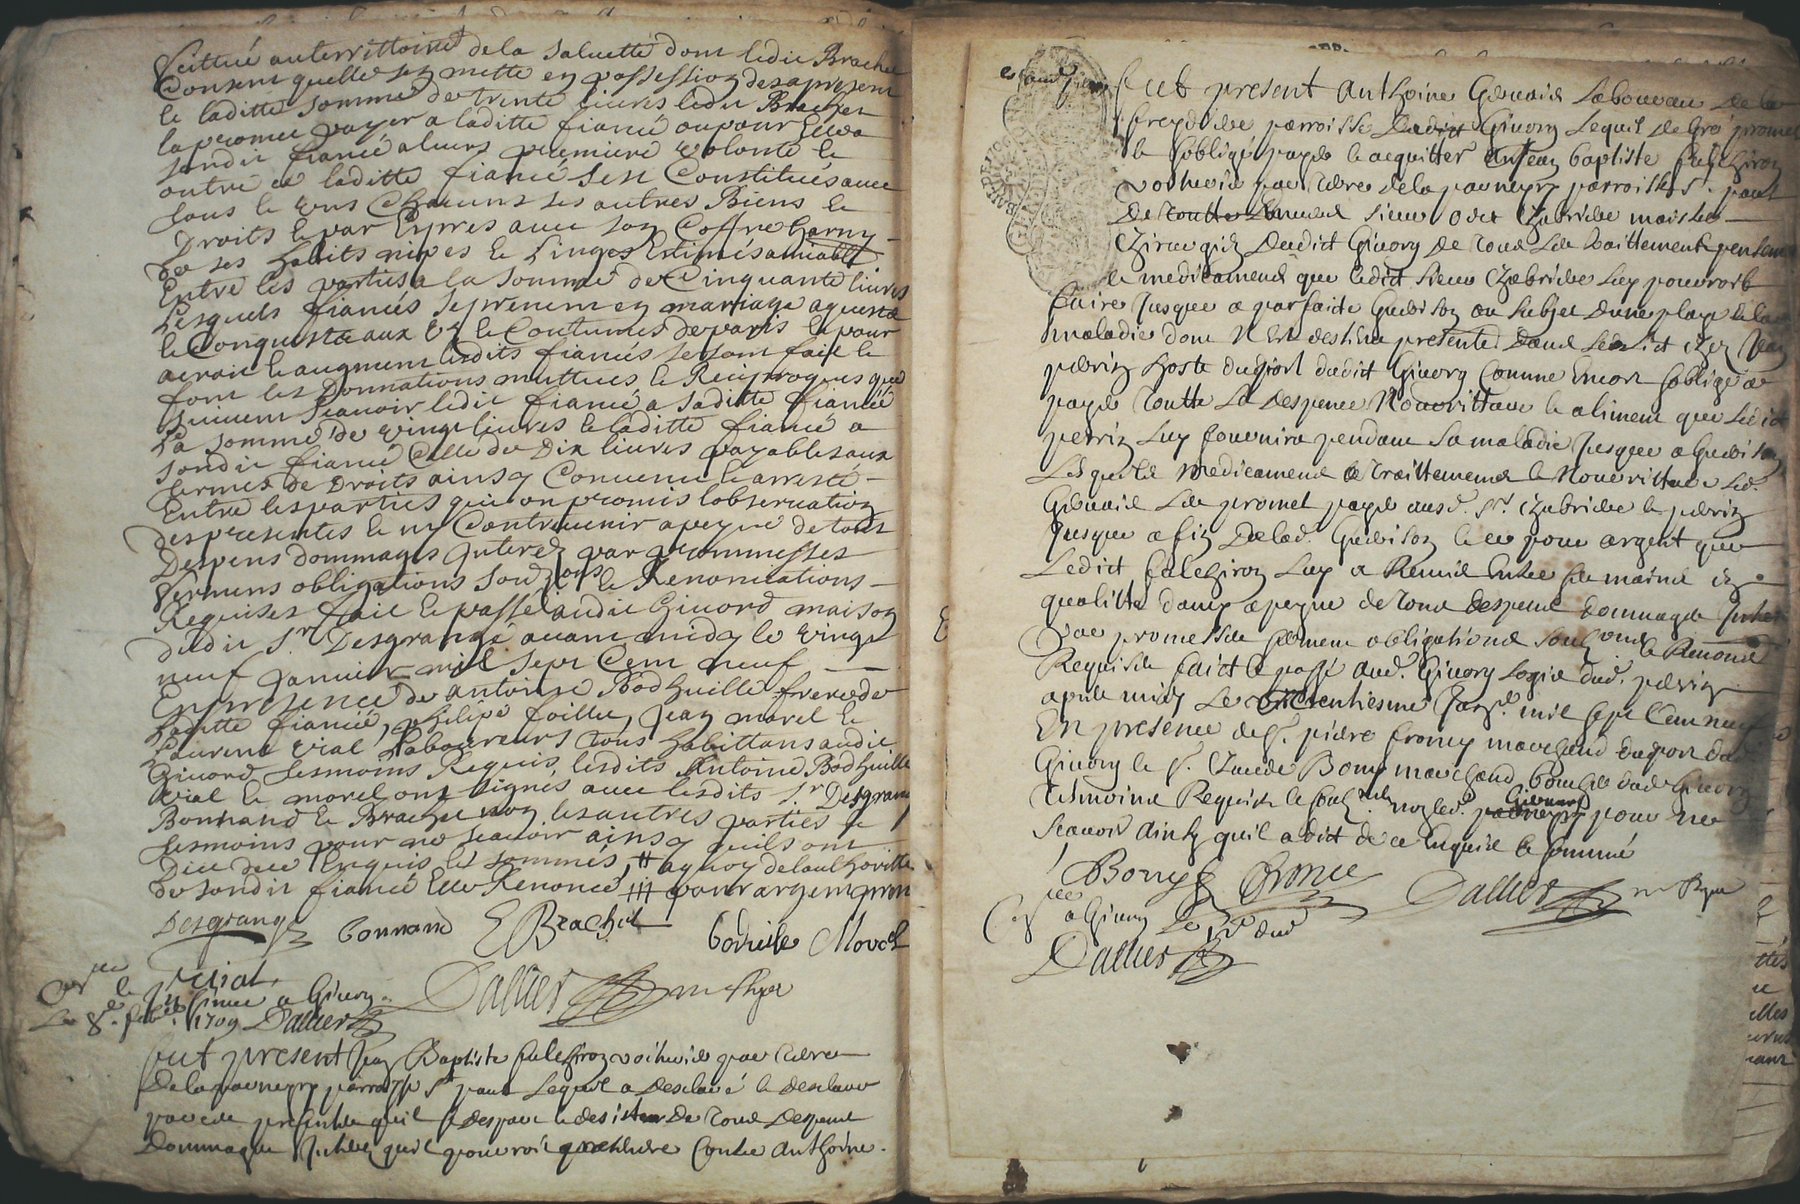 Scittué au territtoire de la Saluette dont ledit Brachet
Consent quelle sen mette en possession des apresent
Et laditte somme de trente liures ledit Brachet
la promet payer a laditte fiancé ou pour Elle a
sondit fiancé a leurs premiere volonté Et
outre ce laditte fiancé sest Constitués auec
tous Et uns Chacuns ses autres Biens Et
Droits Et par Expres auec son Coffre Garny
de ses habits nipes Et Linges Estimés amiablet
Entre les parties a la somme de Cinquante liures
Lesquels fiancés se prenent en mariage a queste
Et Conqueste aux Us Et Coutumes de paris Et pour
acroit Et augment lesdits fiancés se sont fait Et
font les Donnations mutues Et Reciproques que
suiuent Scauoir ledit fiancé a saditte fiancée
La somme de vingt liures Et laditte fiancé a
sondit fiancé Celle de Dix liures payables aux
termes de Droits ainsy Conuenu Et arresté
Entre les parties qui on promis lobseruation
des presentes Et ny Contreuenir a peyne de tous
Despens dommages Interez par prommesses
sermens obligations Soub.ons Et Renontiations
Requises fait Et passé audit Giuord maison
dudit Sr. Desgrange auant midy le vingt
neuf Januier mil sept Cent neuf
En presence de antoine Bodhuille frere de
laditte fiancée, philipe foillet, Jean morel Et
Laurent vial Laboureurs tous habittans audit
Giuord tesmoins Requis, lesdits Antoine Bodhuille
vial Et morel ont signés auec lesdits Sr. Desgrang
Bonnand Et Brachet non les autres parties Et
tesmoins pour ne scauoir ainsy quils ont
Dit de ce Enquis Et sommés # a quoy de lauthoritté
de sondit fiancé Elle Renoncé ### pour argent promt
Desgrange Bonnand E Brachet bodhuille Morel
vial.
Dallier no. Royal
Con.lé Et Insinué a Giuory
Le 8e. feb. 1709 Dallier
fut present Jean Baptiste falchiron voiturié par terre
De la fauneyry parroisse St paul Lequel a Desclaré Et Desclare
par ces presentes quil se despart Et desiste De tous Despens
Dommages Interez quil pouuroit pretendre Contre Anthoine
fut present Anthoine Geruais Laboureur De la
freydiere parroisse Dudict Giuory Lequel De Gré promet
Et soblige paye Et acquitter au Jean baptiste falchiron
voiturié par terre de la fauneyry parroisse St. paul
Sieur odet Chabriere maistre
Chirurgien Dudict Giuory De tous Les traittements pensemt
Et medicaments que ledict sieur Chabriere Luy pouuroit
faire Jusques a parfaite Guerison au subjet Dune playe Et la
maladie dont Il Est destenu presentement Dans Le Lict chez Jean
perrin hoste du port dudict Giuory Comme Encor soblige a
paye toutte La Despence Nourritture Et aliment que Ledict
perrin Luy fournira pendant sa maladie Jusques a Guerison
Lesquels medicaments Et traittements Et Nourritture Led.
Geruais Les promet paye ausd. Sr. Chabriere Et perrin
Jusques a fin De lad. Guerison Et ce pour argent que
Ledict falchiron Luy a Remis Entre ses mains En
qualitté damy a peyne de tous despens dommages Interez
Par promesses serments obligations Soub.ons Et Renons
Requises faict Et passé aud. Giuory Logis dud. perrin
apres midy Le trentiesme Janv. mil sept Cent neuf
En presence de Sr. piere fromy marchand du port dud.
Giuory Et Sr. Claude Bony marchand boucher dud. Giuory
Tesmoins Requis Et soub.nés non led. Geruais pour ne
scauoir ainsy quil a dict de ce Enquis Et sommé
Bony fromie Dallier no. Royal
Con.lé a Giuory Le dud.
Dallier